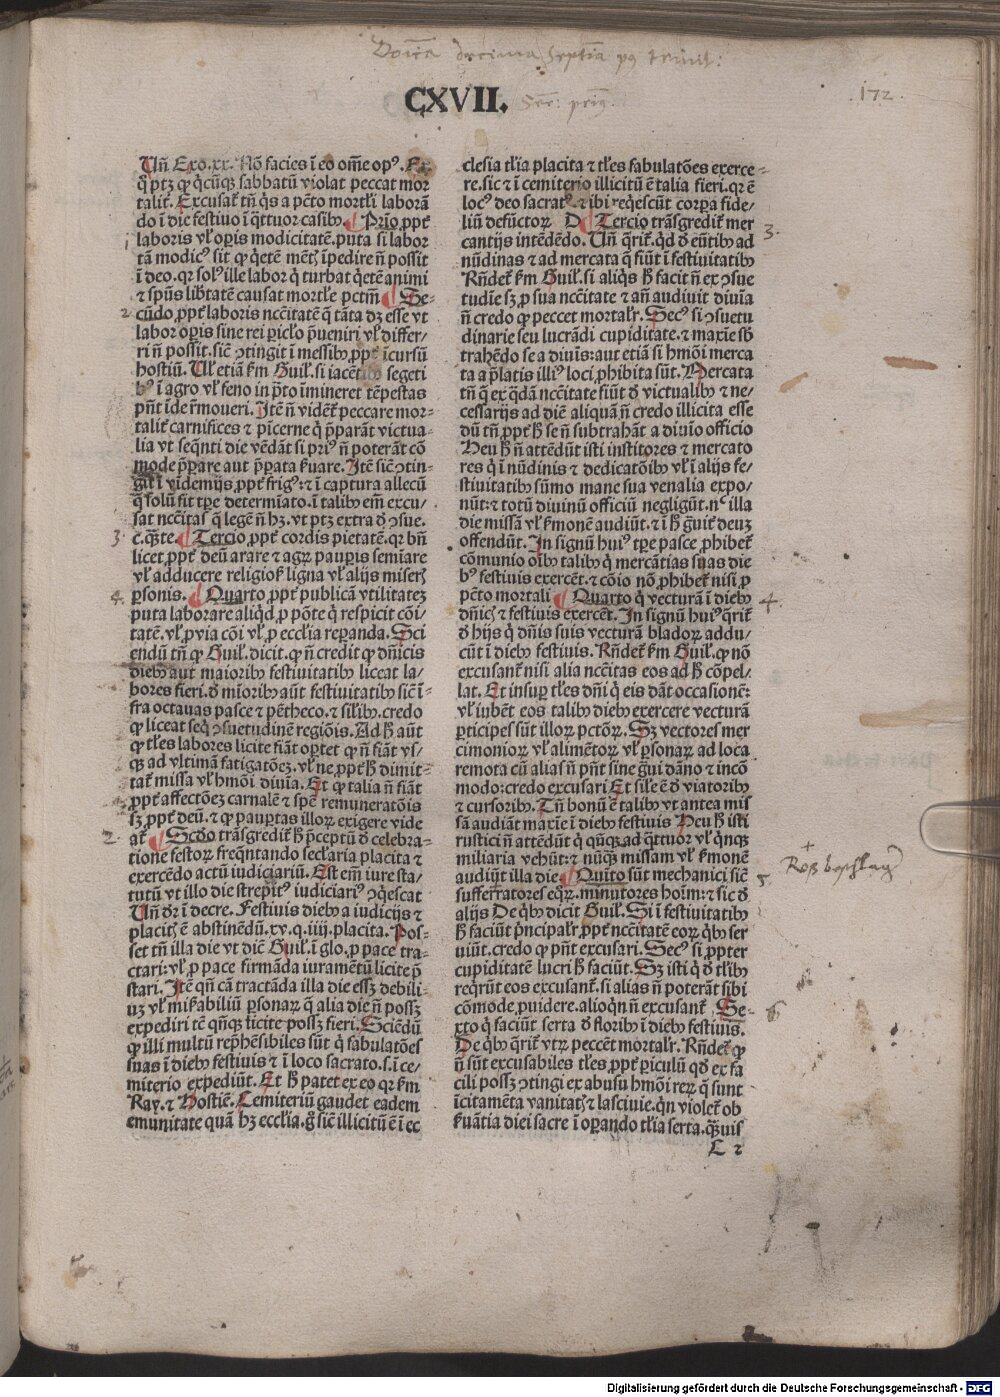 Doīca decima septīa p9 trinit:
CXVII. Ser: prim9.
172
Uñ Exo.xx. Nō facies ī eo om̄e op9. Ex
q̄ ptꝫ ꝙ q̄cūqꝫ sabbatū violat peccat mor
talit̄. Excusat̄ tn̄ q̄s a pc̄to mortli laborā
do ī die festiuo ī q̄ttuor casibꝰ. Prīo ꝓpt̄
laboris vl̄ oꝑis modicitatē. puta si labor
tam modic9 sit ꝙ q̄etē mēt} īpedire n̄ possit
ī deo. qr sol9 ille labor q̄ turbat q̄etē animi
⁊ spūs lib̄tatē causat mortl̄e pctm̄ Se-
cūdo ꝓpt̄ laboris nc̄citatē q̄ tāta dꝫ esse vt
labor oꝑis sine rei ꝑicl̄o p̄ueniri vl̄ differ/
ri n̄ possit. sic̄ ↄtingit ī messibꝰ ꝓpt̄ īcursū
hostiū. Ul̄ etiā ẜm Guil. si iacētibꝰ segeti
b9 ī agro vl̄ feno in p̄to īmineret tēpestas
pn̄t īde r̄moueri. Itē n̄ vidēt̄ peccare mor-
talit̄ carnifices ⁊ pīcerne q̄ p̄parāt victua-
lia vt seq̄nti die vēdāt si pri9 n̄ poterāt cō
mode p̄parare aut p̄parata ẜuare. Itē sic̄ ↄtin-
git ī videmijs ꝓpt̄ frig9: ⁊ ī captura allecū
q̄ solū fit tꝑe determīato. ī talibꝰ em̄ excu/
sat nc̄citas q̄ legē n̄ hꝫ. vt ptꝫ extra d̄ ↄsue.
c. q̄ste. Tercio ꝓpt̄ cordis pietatē. qr bn̄
licet ꝓpt̄ deū arare ⁊ agrꝝ pauꝑis semīare
vl̄ adducere religioſ ligna vl̄ alijs miser}
ꝑsonis. Quarto ꝓpt̄ publicā vtilitateꝫ
puta laborare aliqd̄ ꝓ pōte q̄ respicit cōi/
tatē. vl̄ ꝓ via cōi vl̄ ꝓ eccl̄ia reꝑanda. Sci
endū tn̄ ꝙ Guil. dicit. ꝙ n̄ credit ꝙ dn̄icis
diebꝰ aut maioribꝰ festiuitatibꝰ liceat la/
bores fieri. d̄ mīoribꝰ aūt festiuitatibꝰ sic̄ ī-
fra octauas pasce ⁊ pētheco. ⁊ sil̄ibꝰ. credo
ꝙ liceat seq̄ ↄsuetudinē regiōis. Ad h̄ aūt
ꝙ tl̄es labores licite fiāt oꝑtet ꝙ n̄ fiāt vs/
qꝫ ad vltimā fatigatōeꝫ. vl̄ ne ꝓpt̄ h̄ dimit-
tat̄ missa vl̄ hmōi diuīa. Et ꝙ talia n̄ fiāt
ꝓpt̄ affectōeꝫ carnalē ⁊ spē remuneratōis
sꝫ ꝓpt̄ deū. ⁊ ꝙ paupertas illoꝝ exigere vide
at̄ Scd̄o trāsgredit̄ h̄ p̄ceptū d̄ celebra-
tione festoꝝ freq̄ntando secl̄aria placita ⁊
exercēdo actū iudiciariū. Est em̄ iure sta/
tutū vt illo die strepit9 iudiciari9 ↄq̄escat
Uñ dr̄ ī decre. Festiuis diebꝰ a iudicijs ⁊
placit} ē abstinēdū. xv. q. iiij. placita. Pos-
set tn̄ illa die vt dic̄ Guil. ī glo. ꝓ pace tra-
ctari: vl̄ ꝓ pace firmāda iuramētū licite p̄
stari. Itē qn̄ cā tractāda illa die essꝫ debili-
uꝫ vl̄ miẜabiliū ꝑsonaꝝ q̄ alia die n̄ possꝫ
expediri tē qn̄qꝫ licite possꝫ fieri. Sciēdū
ꝙ illi multū rep̄hēsibiles sūt q̄ fabulatōes
suas ī diebꝰ festiuis ⁊ ī loco sacrato. s. ī ce-
miterio expediūt. Et h̄ patet ex eo qr ẜm
Ray. ⁊ Hostiē. Cemiteriū gaudet eadem
emunitate quā hꝫ eccl̄ia. g̊ sic̄ illicitū ē ī ec
clesia tl̄ia placita ⁊ tl̄es fabulatōes exerce-
re. sic ⁊ ī cemiterio illicitū ē talia fieri. qr ē
loc9 deo sacrat9 ⁊ ibi reqescūt corꝑa fide/
liū defūctoꝝ D Tercio trāsgredit̄ mer
cantijs intēdēdo. Uñ q̄rit̄. qd̄ d̄ eūtibꝰ ad
nūdinas ⁊ ad mercata q̄ fiūt ī festiuitatibꝰ
Rn̄det̄ ẜm Guil. si aliq̄s h̄ facit n̄ ex ↄsue
tudīe sꝫ ꝓ sua nc̄citate ⁊ an̄ audiuit diuīa
n̄ credo ꝙ peccet mortalr̄. Sec9 si ↄsuetu
dinarie seu lucrādi cupiditate. ⁊ maxīe sb̄
trahēdo se a diuīs: aut etiā si hmōi merca
ta a p̄latis illi9 loci ꝓhibita sūt. Mercata
tn̄ q̄ ex q̄dā nc̄citate fiūt d̄ victualibꝰ ⁊ ne/
cessarijs ad diē aliquā n̄ credo illicita esse
dū tn̄ ꝓpt̄ h̄ se n̄ subtrahāt a diuīo officio
Heu h̄ n̄ attēdūt isti institores ⁊ mercato
res q̄ ī nūdinis ⁊ dedicatōibꝰ vl̄ ī alijs fe/
stiuitatibꝰ sūmo mane sua venalia expo/
nūt: ⁊ totū diuinū officiū negligūt. nc illa
die missā vl̄ ẜmonē audiūt. ⁊ ī h̄ g̊uit̄ deuꝫ
offendūt. In signū hui9 tꝑe pasce ꝓhibet̄
cōmunio oībꝰ talibꝰ q̄ mercātias suas die
b9 festiuis exercēt. ⁊ cōio nō ꝓhibet̄ nisi ꝓ
pc̄to mortali Quarto q̄ vecturā ī diebꝰ
dn̄ic} ⁊ festiuis exercēt. In signū hui9 q̄rit̄
d̄ hijs q̄ dn̄is suis vecturā bladoꝝ addu/
cūt ī diebꝰ festiuis. Rn̄det̄ ẜm Guil. ꝙ nō
excusant̄ nisi alia nc̄citas eos ad h̄ cōpel/
lat. Et insuꝑ tl̄es dn̄i q̄ eis dāt occasionē:
vl̄ iubēt eos talibꝰ diebꝰ exercere vecturā
ꝑticipes sūt illoꝝ pctōꝝ. Sꝫ vectores mer
cimonioꝝ vl̄ alimētoꝝ vl̄ ꝑsonaꝝ ad loca
remota cū alias n̄ pn̄t sine g̊ui dāno ⁊ incō
modo: credo excusari Et sil̄e ē d̄ viatoribꝰ
⁊ cursoribꝰ. Tn̄ bonū ē talibꝰ vt antea mis
sā audiāt maxīe ī diebꝰ festiuis Heu h̄ isti
rustici n̄ attēdūt q̄ qn̄qꝫ ad q̄ttuor vl̄ q̄nqꝫ
miliaria vehūt: ⁊ nūq̄ missam vl̄ ẜmonē
audiūt illa die Quīto sūt mechanici sic̄
sufferratores eqꝝ. minutores hoīm: ⁊ sic d̄
alijs De q̄bꝰ dicit Guil. Si ī festiuitatibꝰ
h̄ faciūt p̄ncipalr̄ ꝓpt̄ nc̄citatē eoꝝ q̄bꝰ ser
uiūt. credo ꝙ pn̄t excusari. Sec9 si ꝓpter
cupiditatē lucri h̄ faciūt. Sꝫ isti q̄ d̄ tl̄ibꝰ
reqrūt eos excusant̄. si alias n̄ poterāt sibi
cōmode ꝓuidere. alioqn̄ n̄ excusant̄ Se-
xto q̄ faciūt serta d̄ floribꝰ ī diebꝰ festiuis.
De q̄bꝰ q̄rit̄ vtꝝ peccēt mortalr̄. Rn̄det̄ ꝙ
n̄ sūt excusabiles tl̄es ꝓpt̄ ꝑiculū qd̄ ex fa
cili possꝫ ↄtingi ex abusu hmōi reꝝ q̄ sunt
īcitamēta vanitat} ⁊ lasciuie. qn̄ violet̄ ob
ẜuātia diei sacre ī oꝑando tl̄ia serta. q̄uis
C 2
1
2
3
4
2
3.
4.
5
6
Roß beschlag
Digitalisierung gefördert durch die Deutsche Forschungsgemeinschaft - DFG